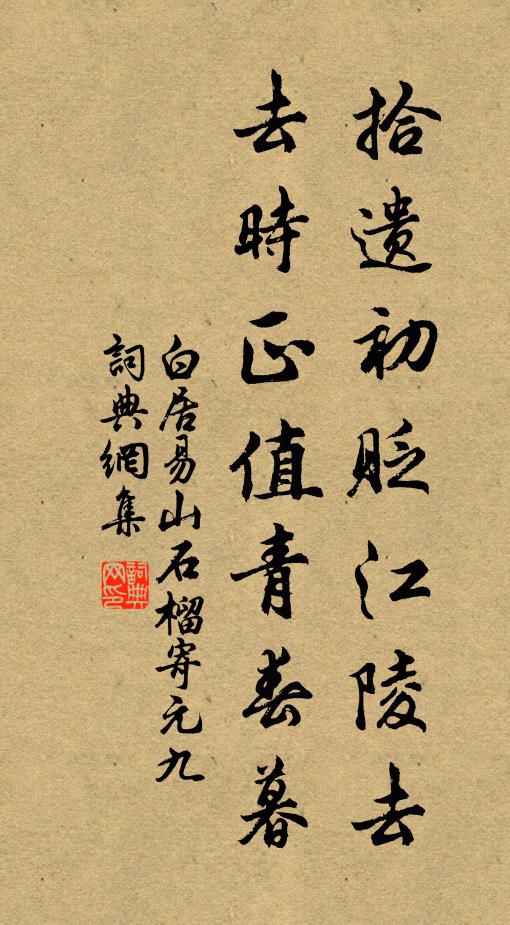 拾遗初貶江陵去
去時正值青春暮
白居易山石榴寄元九
詞典網集
詞典網印